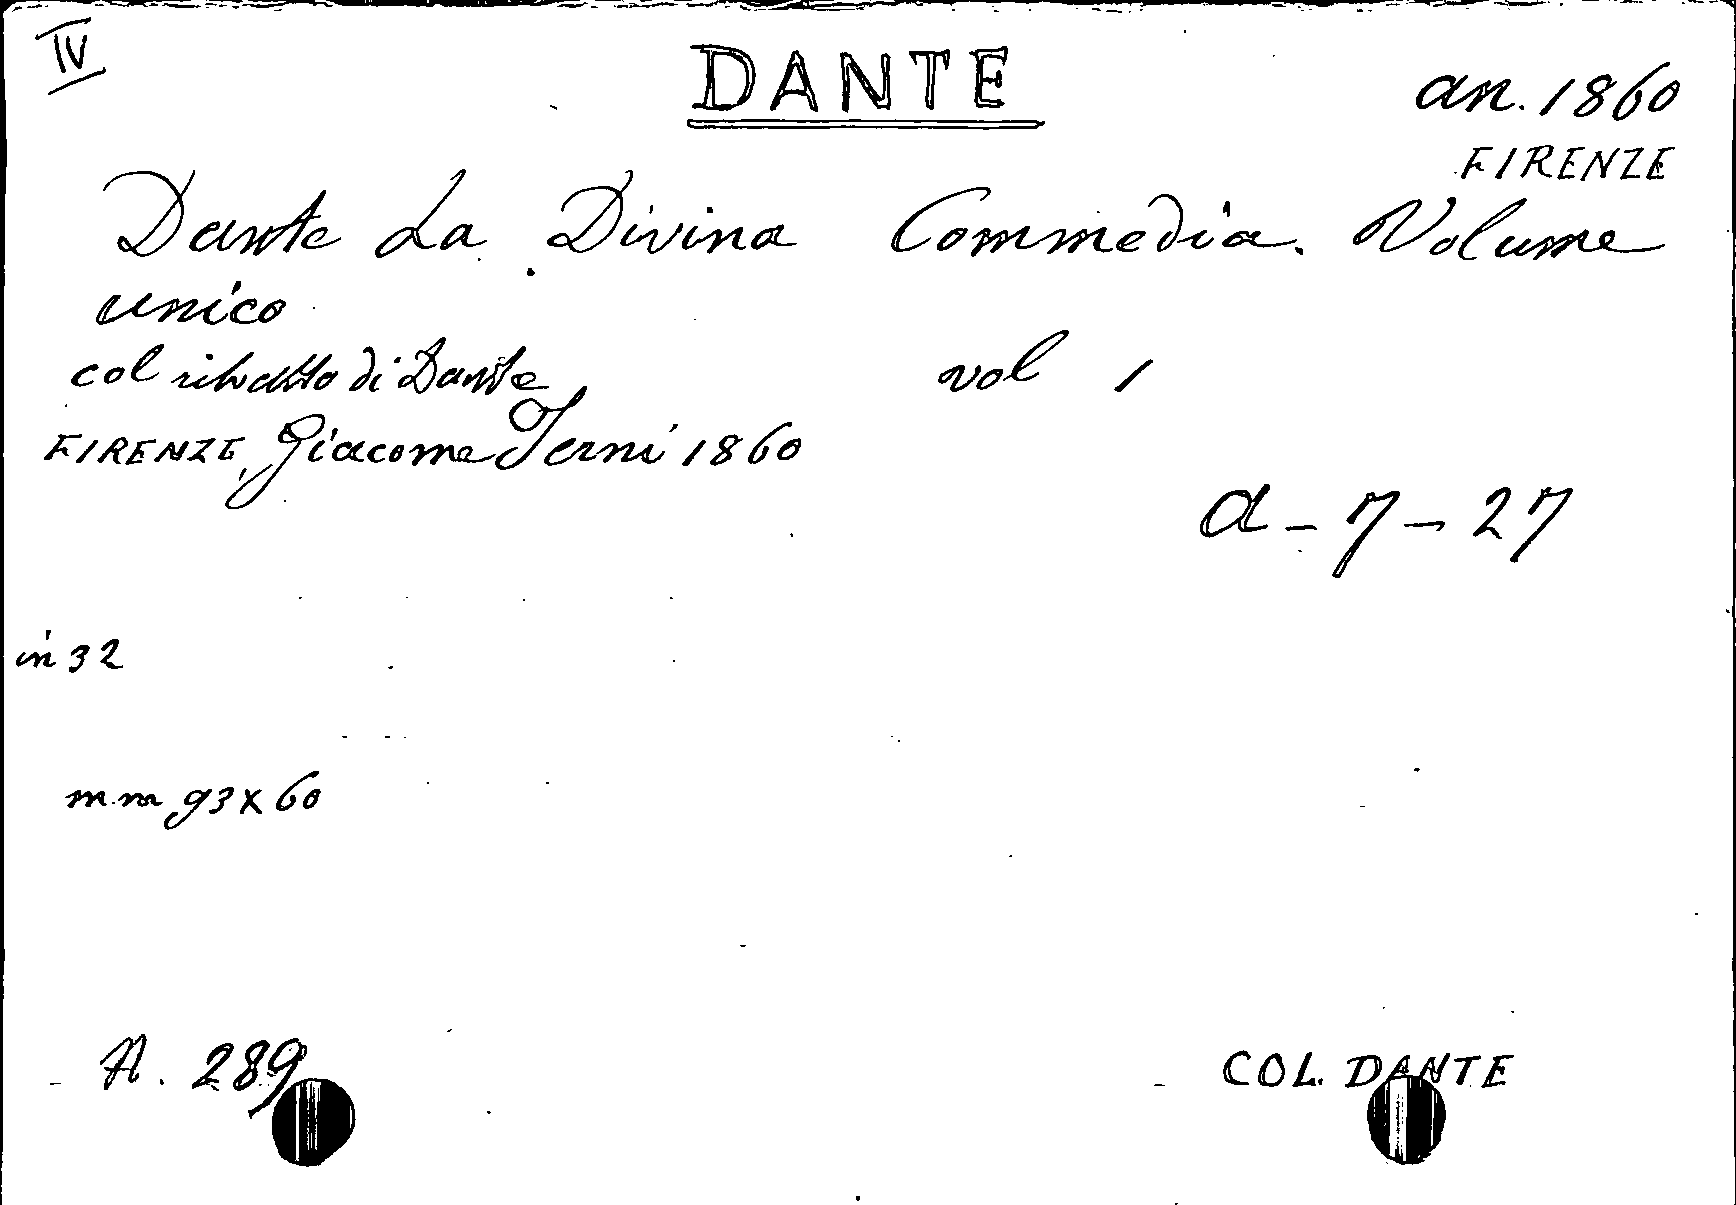 IV
DANTE
an. 1860
FIRENZE
Dante La Divina Commedia. Volume
unico
col ritratto di Dante vol 1
FIRENZE, Giacome Terni 1860
a - 7 - 27
in 32
m.m 93 x 60
A. 289
COL. DANTE